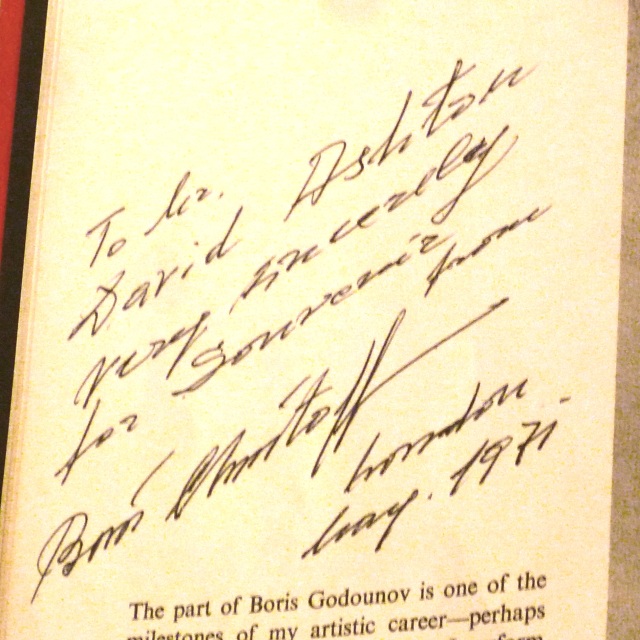 To Mr. Ashton
David
very sincerely
for souvenir from
Boris Christoff
London
May. 1971.
The part of Boris Godounov is one of the
milestones of my artistic career—perhaps